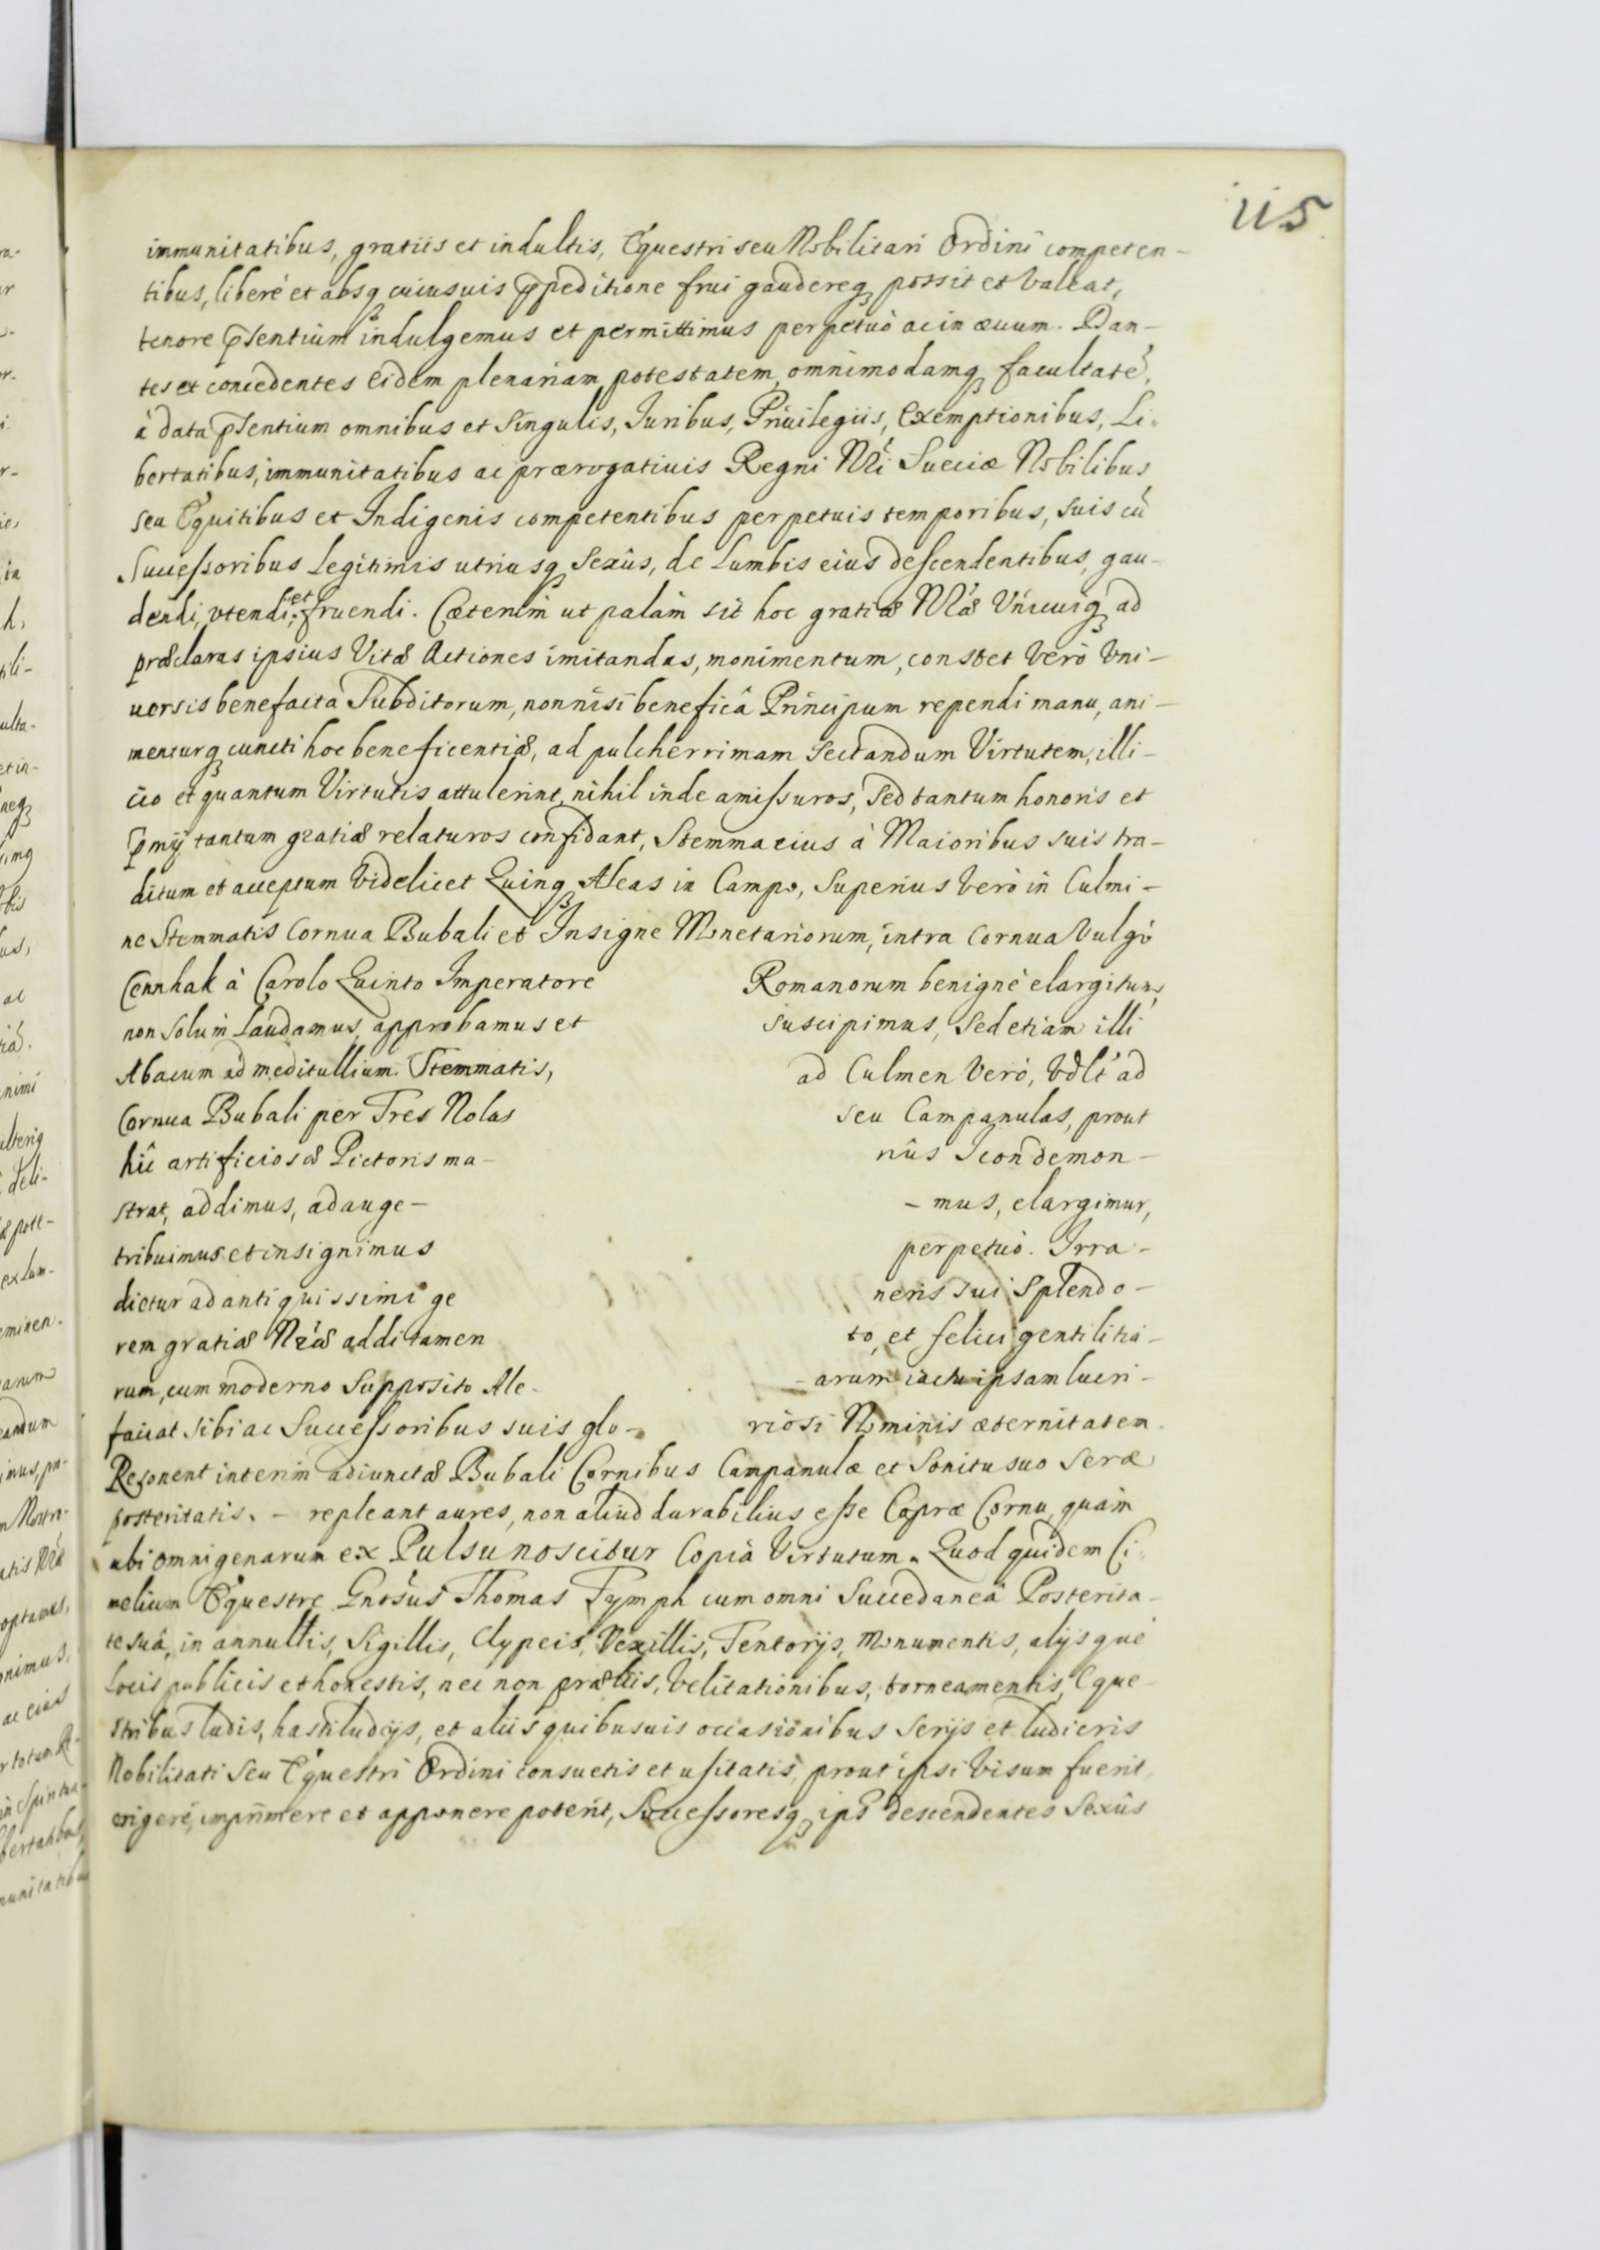 115
immunitatibus, gratiis et indultis, Equestri seu Nobilitari Ordini competen-
tibus, liberè et absq cuiusuis p̄peditione frui gaudereq possit et valeat,
tenore p̄sentium indulgemus et permittimus perpetuò ac in æuum. Dan-
tes et concedentes eidem plenariam potestatem, omnimodamq facultatē,
à data p̄sentium omnibus et singulis, Iuribus, Priuilegiis, Exemptionibus, Li-
bertatibus, immunitatibus ac prærogatiuis Regni Nr̄i Sueciæ Nobilibus
seu Equitibus et Indigenis competentibus perpetuis temporibus, suis cū
Successoribus legitimis utriusq sexûs, de Lumbis eius descendentibus, gau-
dendi, vtendi, et fruendi. Cæterùm ut palàm sit hoc gratiæ Nr̄æ Vnicuiq ad
præclaras ipsius Vitæ Actiones imitandas, monimentum, constet verò Vni-
uersis benefacta Subditorum, nonnisi beneficâ Principum rependi manu, ani-
menturq cuncti hoc beneficentiæ, ad pulcherrimam sectandum Virtutem, illi-
cio et quantum Virtutis attulerint, nihil inde amissuros, sed tantum honoris et
p̄mij tantum gratiæ relaturos confidant, Stemma eius à Maioribus suis tra-
ditum et acceptum videlicet Quinq Aleas in Campo, Superius verò in Culmi-
ne Stemmatis Cornua Bubali et Insigne Monetariorum, intra cornua vulgò
Cennhak à Carolo Quinto Imperatore Romanorum benignè elargitum,
non solùm laudamus, approbamus et suscipimus, sed etiam illi
Abacum ad meditullium Stemmatis, ad Culmen verò, vdlt ad
Cornua Bubali per Tres Nolas seu Campanulas, prout
hîc artificiosæ Pictoris ma- nûs Icon demon-
strat, addimus, adauge- - mus, elargimur,
tribuimus et insignimus perpetuò. Irra-
dietur ad antiquissimi ge neris sui Splendo-
rem gratiæ Nr̄æ additamen to, et felici gentilitia-
rum, cum moderno Supposito Ale- - arum iactu ipsam lucri-
faciat sibi ac Successoribus suis glo- riosi Nominis æternitatem.
Resonent interim adiunctæ Bubali Cornibus Campanulæ et Sonitu suo Seræ
posteritatis. - repleant aures, non aliud durabilius esse Capræ Cornu, quàm
ubi omnigenarum ex Pulsu noscitur Copia Virtutum. Quod quidem Ci-
melium Equestre Gnōsus Thomas Tymph cum omni Succedaneâ Posterita-
te suâ, in annullis, Sigillis, Clypeis, Vexillis, Tentorijs, Monumentis, alijsque
Locis publicis et honestis, nec non prælliis, Velitationibus, torneamentis, Eque-
stribus ludis, hastiludijs, et aliis quibusuis occasionibus serijs et ludicris
Nobilitati seu Equestri Ordini consuetis et usitatis, prout ipsi visum fuerit,
erigere, imprimere et apponere poterit, Successoresq ips̄ descendentes sexûs